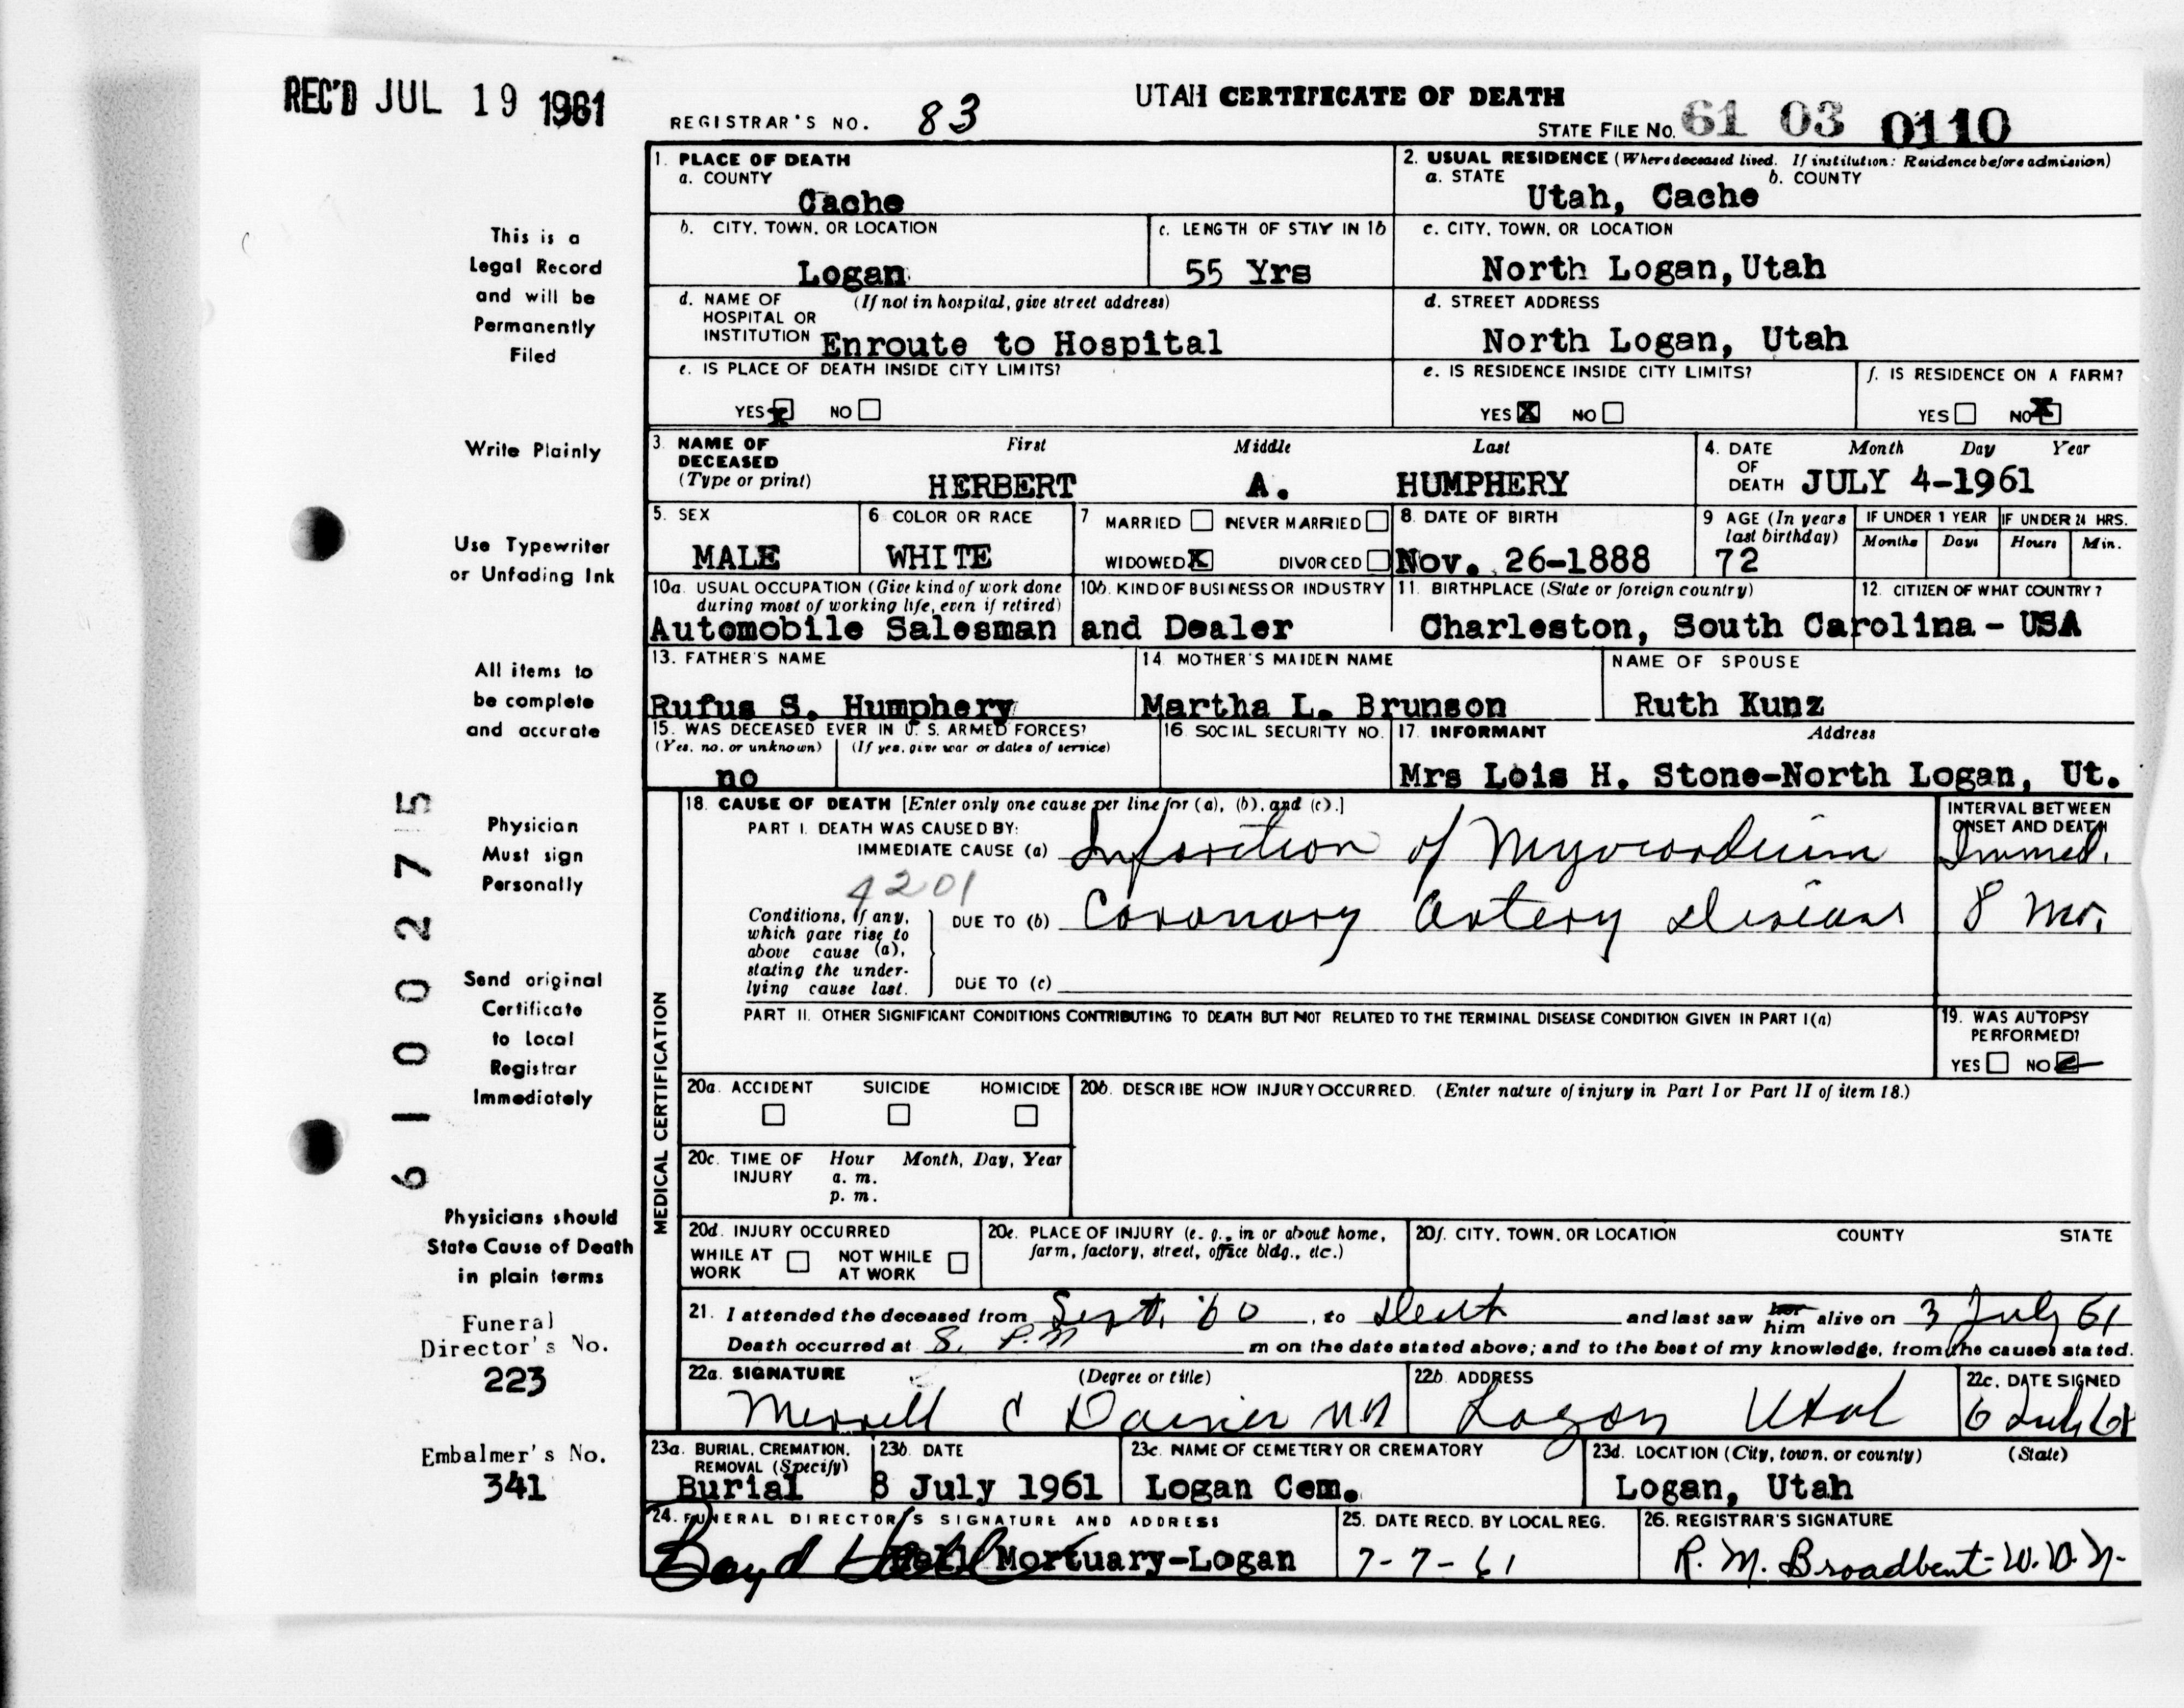 REC'D JUL 19 1961
UTAH CERTIFICATE OF DEATH
REGISTRAR'S NO. 83
STATE FILE No. 61 03 0110
1. PLACE OF DEATH
a. COUNTY
Cache
2. USUAL RESIDENCE (Where deceased lived. If institution: Residence before admission)
a. STATE b. COUNTY
Utah, Cache
b. CITY, TOWN, OR LOCATION
Logan
c. LENGTH OF STAY IN 1b
55 Yrs
c. CITY, TOWN, OR LOCATION
North Logan, Utah
d. NAME OF HOSPITAL OR INSTITUTION (If not in hospital, give street address)
Enroute to Hospital
d. STREET ADDRESS
North Logan, Utah
e. IS PLACE OF DEATH INSIDE CITY LIMITS?
YES X NO
e. IS RESIDENCE INSIDE CITY LIMITS?
YES X NO
f. IS RESIDENCE ON A FARM?
YES NO X
3. NAME OF DECEASED (Type or print)
First Middle Last
HERBERT A. HUMPHERY
4. DATE OF DEATH Month Day Year
JULY 4-1961
5. SEX
MALE
6 COLOR OR RACE
WHITE
7 MARRIED NEVER MARRIED
WIDOWED X DIVORCED
8. DATE OF BIRTH
Nov. 26-1888
9 AGE (In years last birthday)
72
IF UNDER 1 YEAR IF UNDER 24 HRS.
Months Days Hours Min.
10a. USUAL OCCUPATION (Give kind of work done during most of working life, even if retired)
10b. KIND OF BUSINESS OR INDUSTRY
Automobile Salesman and Dealer
11. BIRTHPLACE (State or foreign country)
12. CITIZEN OF WHAT COUNTRY?
Charleston, South Carolina - USA
13. FATHER'S NAME
Rufus S. Humphery
14. MOTHER'S MAIDEN NAME
Martha L. Brunson
NAME OF SPOUSE
Ruth Kunz
15. WAS DECEASED EVER IN U. S. ARMED FORCES?
(Yes, no, or unknown) (If yes, give war or dates of service)
no
16. SOCIAL SECURITY NO.
17. INFORMANT Address
Mrs Lois H. Stone-North Logan, Ut.
MEDICAL CERTIFICATION
18. CAUSE OF DEATH [Enter only one cause per line for (a), (b), and (c).]
INTERVAL BETWEEN ONSET AND DEATH
PART I. DEATH WAS CAUSED BY:
IMMEDIATE CAUSE (a) Infarction of Myocardium Immed.
4201
Conditions, if any, which gave rise to above cause (a), stating the underlying cause last.
DUE TO (b) Coronary Artery Disease 8 mo.
DUE TO (c)
PART II. OTHER SIGNIFICANT CONDITIONS CONTRIBUTING TO DEATH BUT NOT RELATED TO THE TERMINAL DISEASE CONDITION GIVEN IN PART I(a)
19. WAS AUTOPSY PERFORMED?
YES NO
20a. ACCIDENT SUICIDE HOMICIDE
20b. DESCRIBE HOW INJURY OCCURRED. (Enter nature of injury in Part I or Part II of item 18.)
20c. TIME OF INJURY Hour Month, Day, Year
a. m.
p. m.
20d. INJURY OCCURRED
WHILE AT WORK NOT WHILE AT WORK
20e. PLACE OF INJURY (e. g., in or about home, farm, factory, street, office bldg., etc.)
20f. CITY, TOWN, OR LOCATION COUNTY STATE
21. I attended the deceased from Sept. '60, to Death and last saw her him alive on 3 July 61
Death occurred at 8. P.M m on the date stated above; and to the best of my knowledge, from the causes stated.
22a. SIGNATURE (Degree or title)
Merrill C Daines MD
22b. ADDRESS
Logan Utah
22c. DATE SIGNED
6 July 61
23a. BURIAL, CREMATION, REMOVAL (Specify)
Burial
23b. DATE
8 July 1961
23c. NAME OF CEMETERY OR CREMATORY
Logan Cem.
23d. LOCATION (City, town, or county) (State)
Logan, Utah
24. FUNERAL DIRECTOR'S SIGNATURE AND ADDRESS
Boyd Hall Hall Mortuary-Logan
25. DATE RECD. BY LOCAL REG.
7-7-61
26. REGISTRAR'S SIGNATURE
R. M. Broadbent-
This is a
Legal Record
and will be
Permanently
Filed
Write Plainly
Use Typewriter
or Unfading Ink
All items to
be complete
and accurate
Physician
Must sign
Personally
Send original
Certificate
to Local
Registrar
Immediately
Physicians should
State Cause of Death
in plain terms
Funeral
Director's No.
223
Embalmer's No.
341
61002775